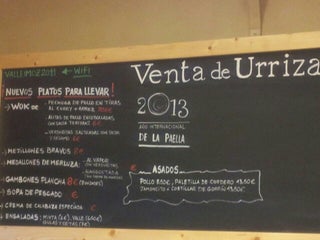 VALLEIMOZ2011 ← WIFI
NUEVOS PLATOS PARA LLEVAR!
→ WOK DE
- PECHUGA DE POLLO EN TIRAS
AL CURRY Y ARROZ
- ALITAS DE POLLO
CON SALSA TERIYAKI 6€
- VERDURITAS SALTEADAS CON SOJA
6€
→ MEJILLONES BRAVOS 8€
→ MEDALLONES DE MERLUZA:
AL VAPOR
CON
→ GAMBONES PLANCHA 8€
→ SOPA DE PESCADO €
→ CREMA DE CALABAZA ESPECIADA €
→ ENSALADAS: MIXTA (4€), VALLE (6'50€)
Venta de Urriza
2013
AÑO INTERNACIONAL
DE LA PAELLA
ASADOS
POLLO 8'00€, PALETILLA DE CORDERO 13,50€
JAMONCITO o COSTILLAR DE GORRÍN 13,50€